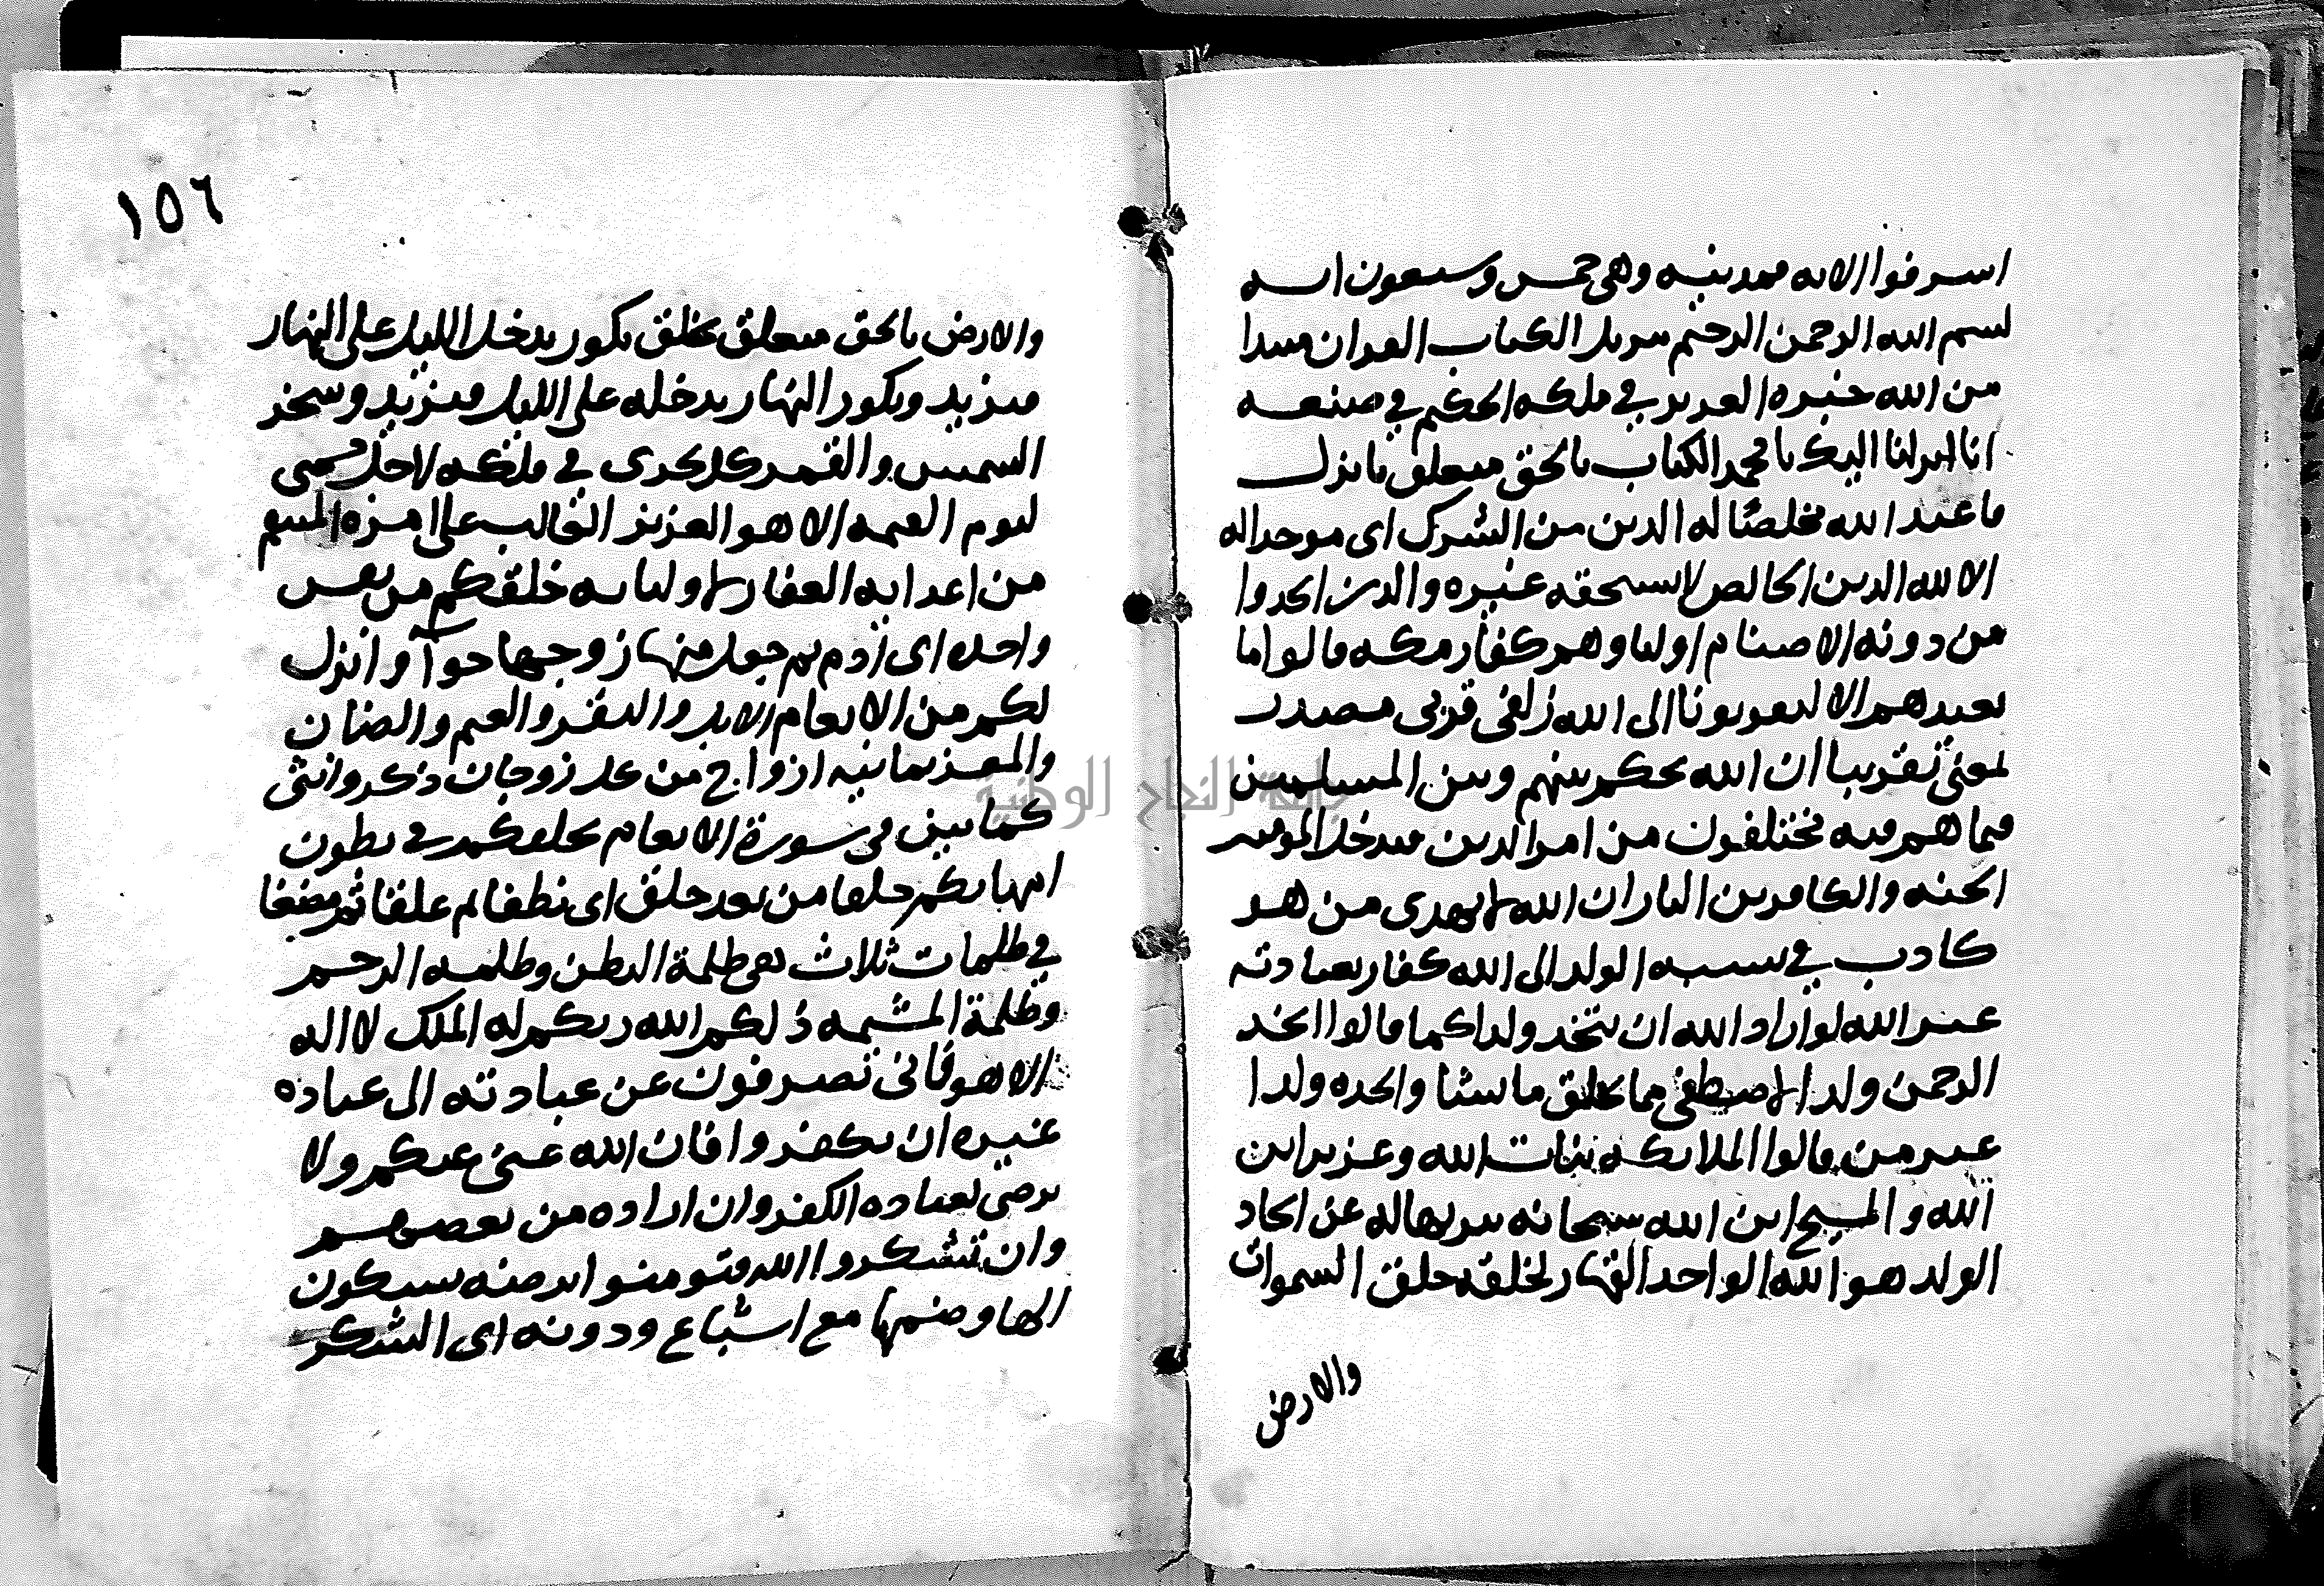 اسرفوا الايه فمدنيه وهي خمس وسبعون ايه
بسم الله الرحمن الرحيم تنزيل الكتاب القران مبتدا
من الله خبره العزيز في ملكه الحكيم في صنعه
انا انزلنا اليك يا محمد الكتاب بالحق متعلق بانزل
فاعبد الله مخلصا له الدين من الشرك اى موحدا له
الا لله الدين الخالص لا يستحقه غيره والذين اتخذوا
من دونه الاصنام اوليا وهم كفار مكه قالوا ما
نعبدهم الا ليقربونا الى الله زلفى قربى مصدر
بمعنى تقريبا ان الله يحكم بينهم وبين المسلمين
فيما هم فيه يختلفون من امر الدين فيدخل المومنين
الجنه والكافرين النار ان الله لا يهدى من هو
كاذب في نسبه الولد الى الله كفار بعبادته
غير الله لو اراد الله ان يتخذ ولدا كما قالوا اتخذ
الرحمن ولدا لاصطفى مما يخلق ما يشا واتخذه ولدا
غير من قالوا الملايكه بنات الله وعزير ابن
الله والمسيح ابن الله سبحانه تنزيها له عن اتخاذ
الولد هو الله الواحد القهار لخلقه خلق السموات
والارض
١٥٦
والارض بالحق متعلق بخلق يكور يدخل الليل على النهار
فيزيد ويكور النهار يدخله على الليل فيزيد وسخر
الشمس والقمر كل يجرى في فلكه لاجل مسمى
ليوم القيمه الا هو العزيز الغالب على امره المنتقم
من اعدايه الغفار لاوليايه خلقكم من نفس
واحده اى آدم ثم جعل منها زوجها حوآ وانزل
لكم من الانعام الابل والبقر والغنم والضان
والمعز ثمانيه ازواج من كل زوجان ذكر وانثى
كما بين فى سورة الانعام يخلقكم في بطون
امهاتكم خلقا من بعد خلق اى نطفا ثم علقا ثم مضغا
في ظلمات ثلاث هى ظلمة البطن وظلمه الرحم
وظلمة المشيمه ذلكم الله ربكم له الملك لا اله
الا هو فانى تصرفون عن عبادته الى عباده
غيره ان تكفروا فان الله غنى عنكم ولا
يرضى لعباده الكفر وان اراده من بعضهم
وان تشكروا الله فتومنوا يرضه بسكون
الها وضمها مع اشباع ودونه اى الشكر